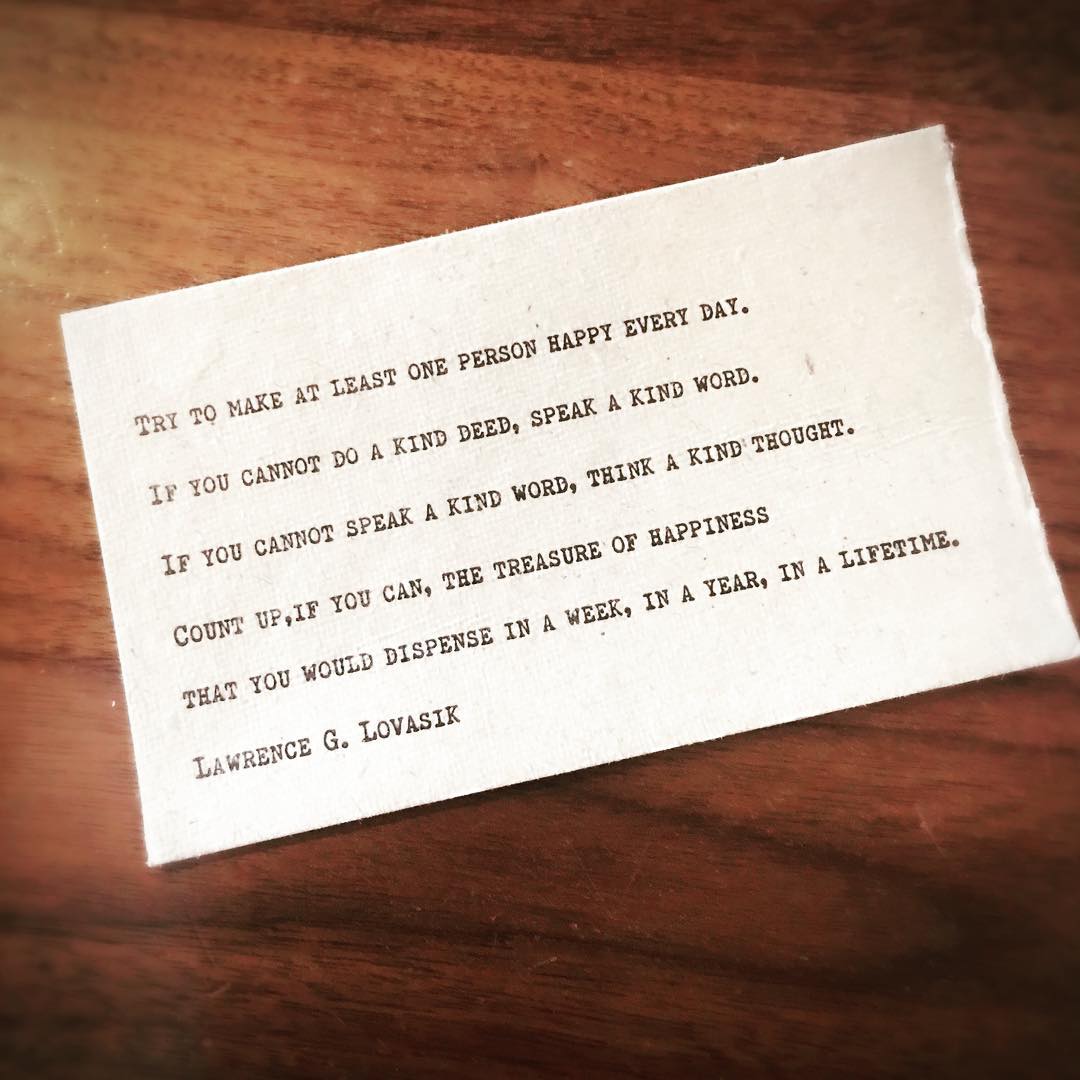 Try to make at least one person happy every day.
If you cannot do a kind deed, speak a kind word.
If you cannot speak a kind word, think a kind thought.
Count up,if you can, the treasure of happiness
that you would dispense in a week, in a year, in a lifetime.
Lawrence G. Lovasik